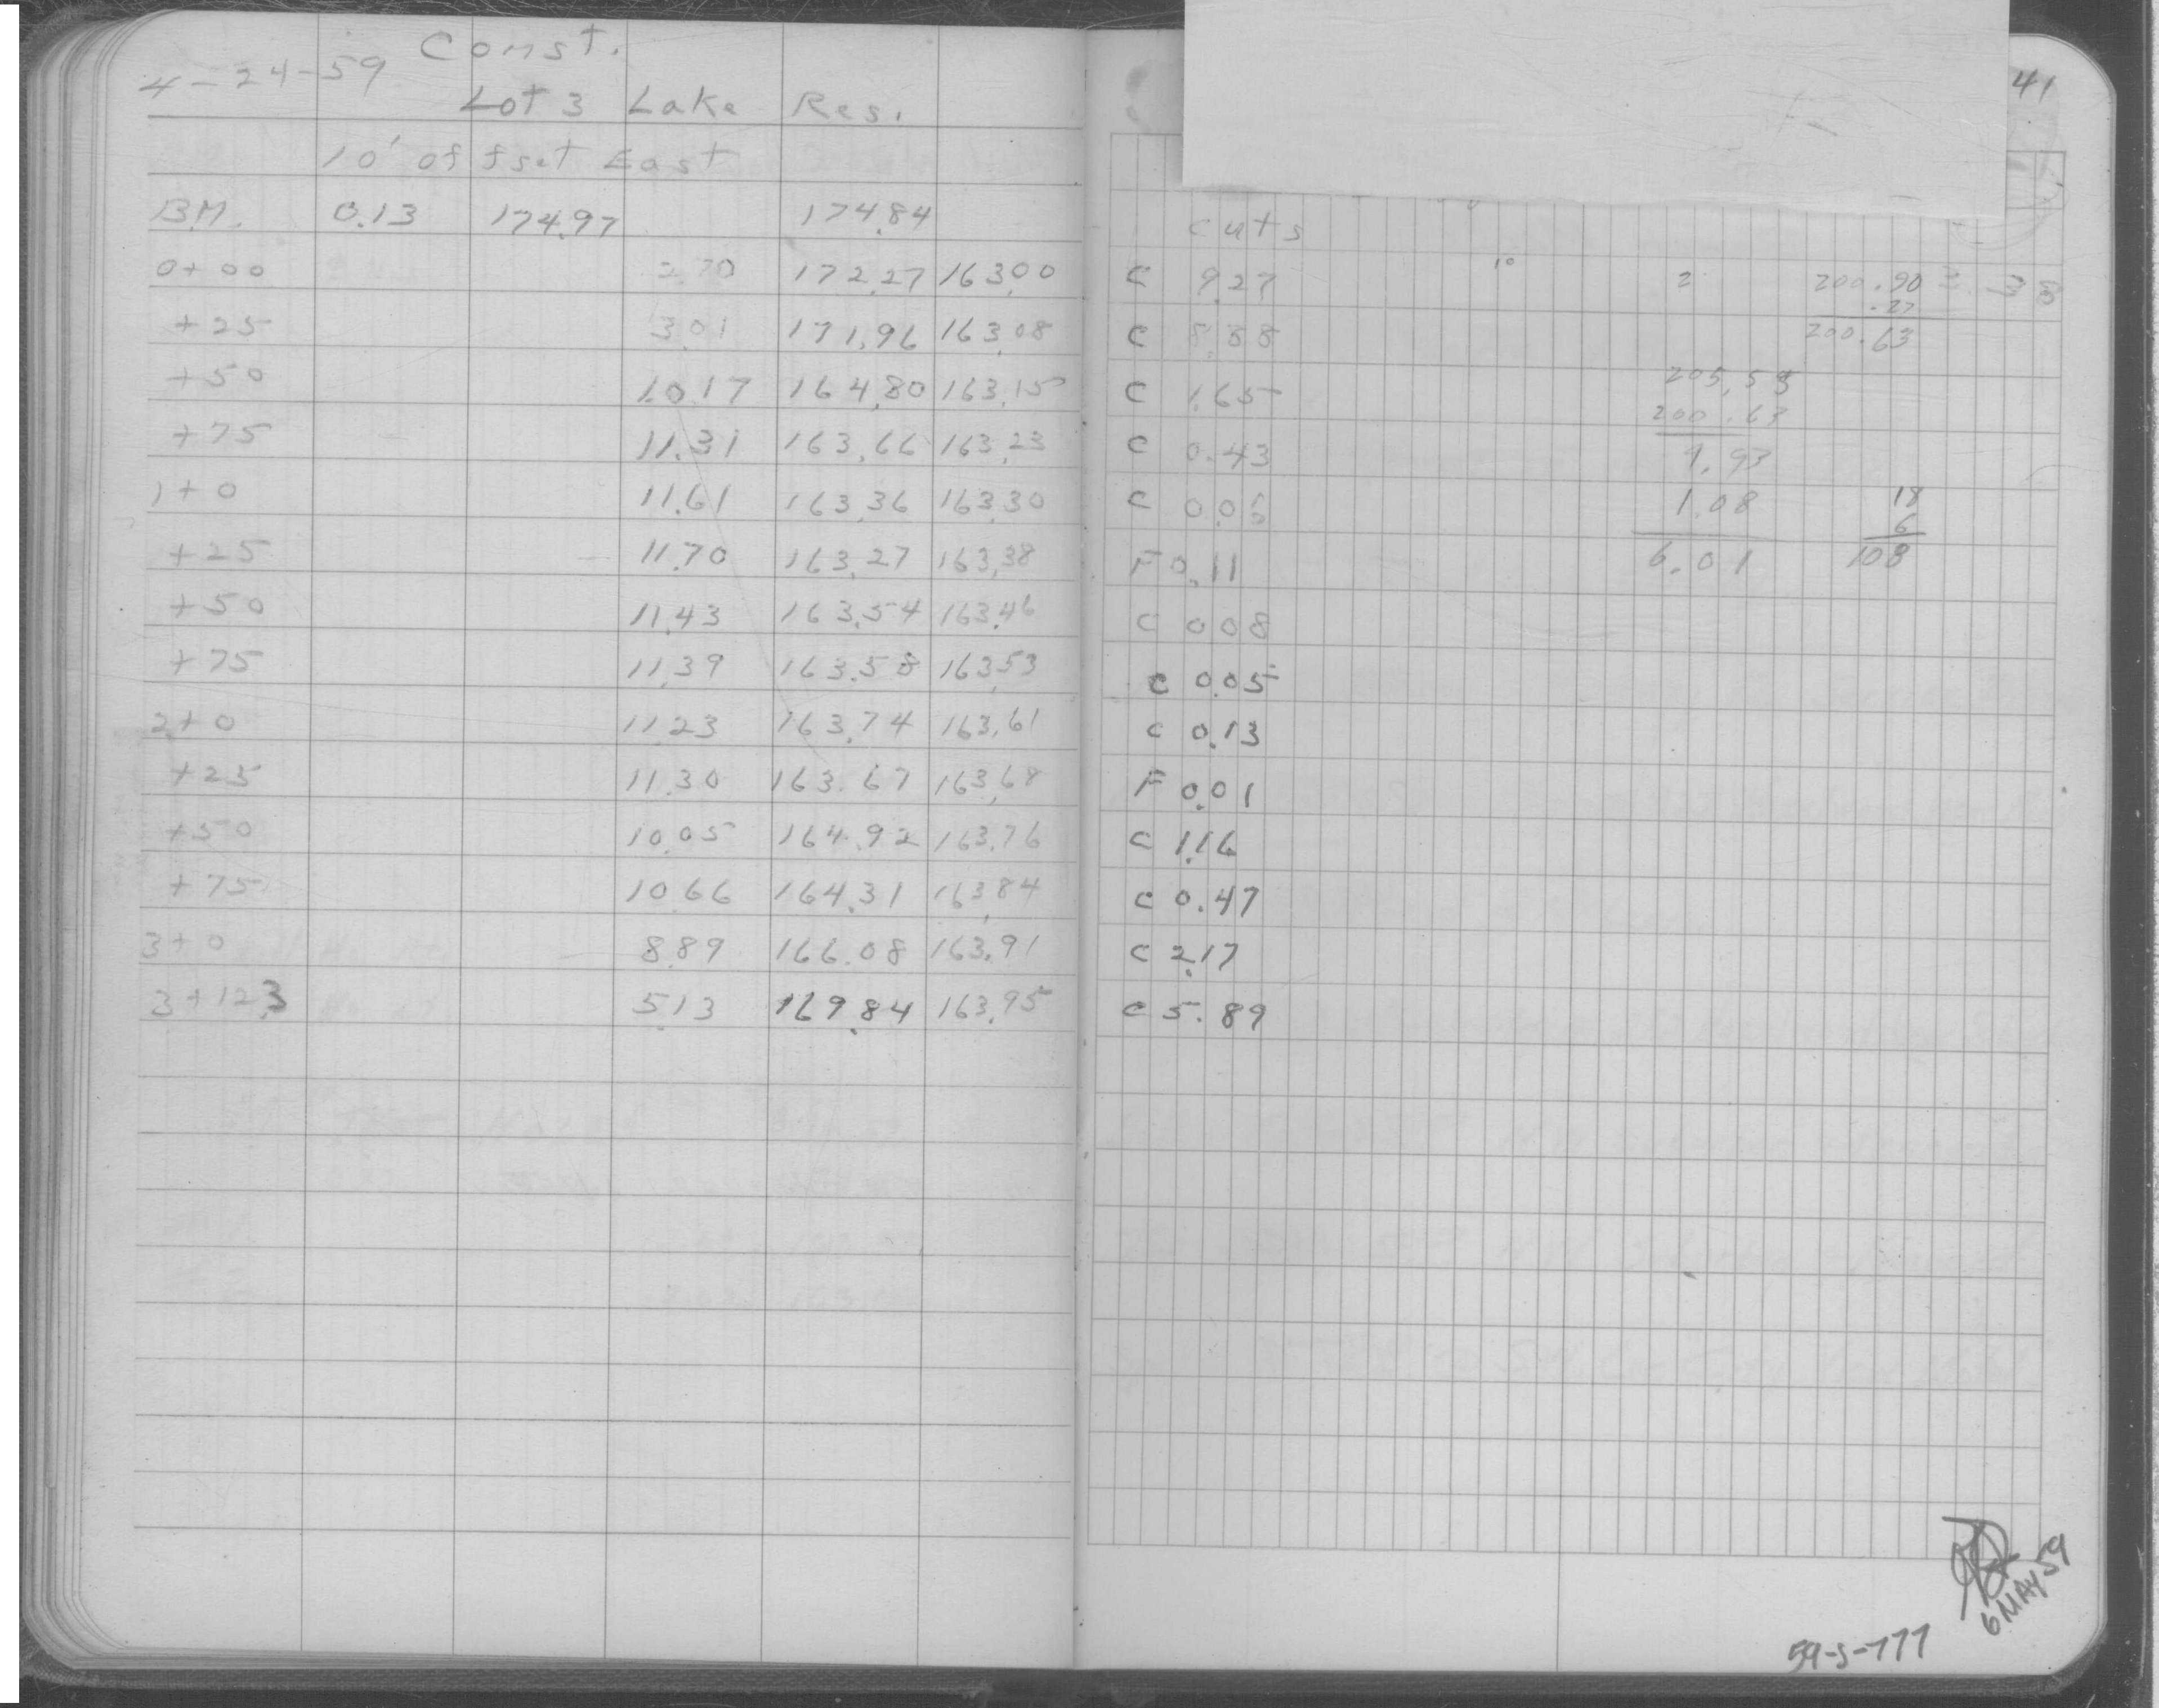 4-24-59 Const.
Lot 3 Lake Res.
10' offset East
B.M. 0.13 174.97 174.84
0+00 2.70 172.27 163.00
+25 3.01 171.96 163.08
+50 10.17 164.80 163.15
+75 11.31 163.66 163.23
1+0 11.61 163.36 163.30
+25 11.70 163.27 163.38
+50 11.43 163.54 163.46
+75 11.39 163.58 163.53
2+0 11.23 163.74 163.61
+25 11.30 163.67 163.68
+50 10.05 164.92 163.76
+75 10.66 164.31 163.84
3+0 8.89 166.08 163.91
3+12.3 5.13 169.84 163.95
41
cuts
C 9.27 10 2 200.90
.27
C 8.88 200.63
C 1.65 205.55
200.63
C 0.43 1.93
C 0.06 1.08 18
6
F 0.11 6.01 108
C 0.08
C 0.05
C 0.13
F 0.01
C 1.16
C 0.47
C 2.17
C 5.89
6 MAY 59
59-S-777